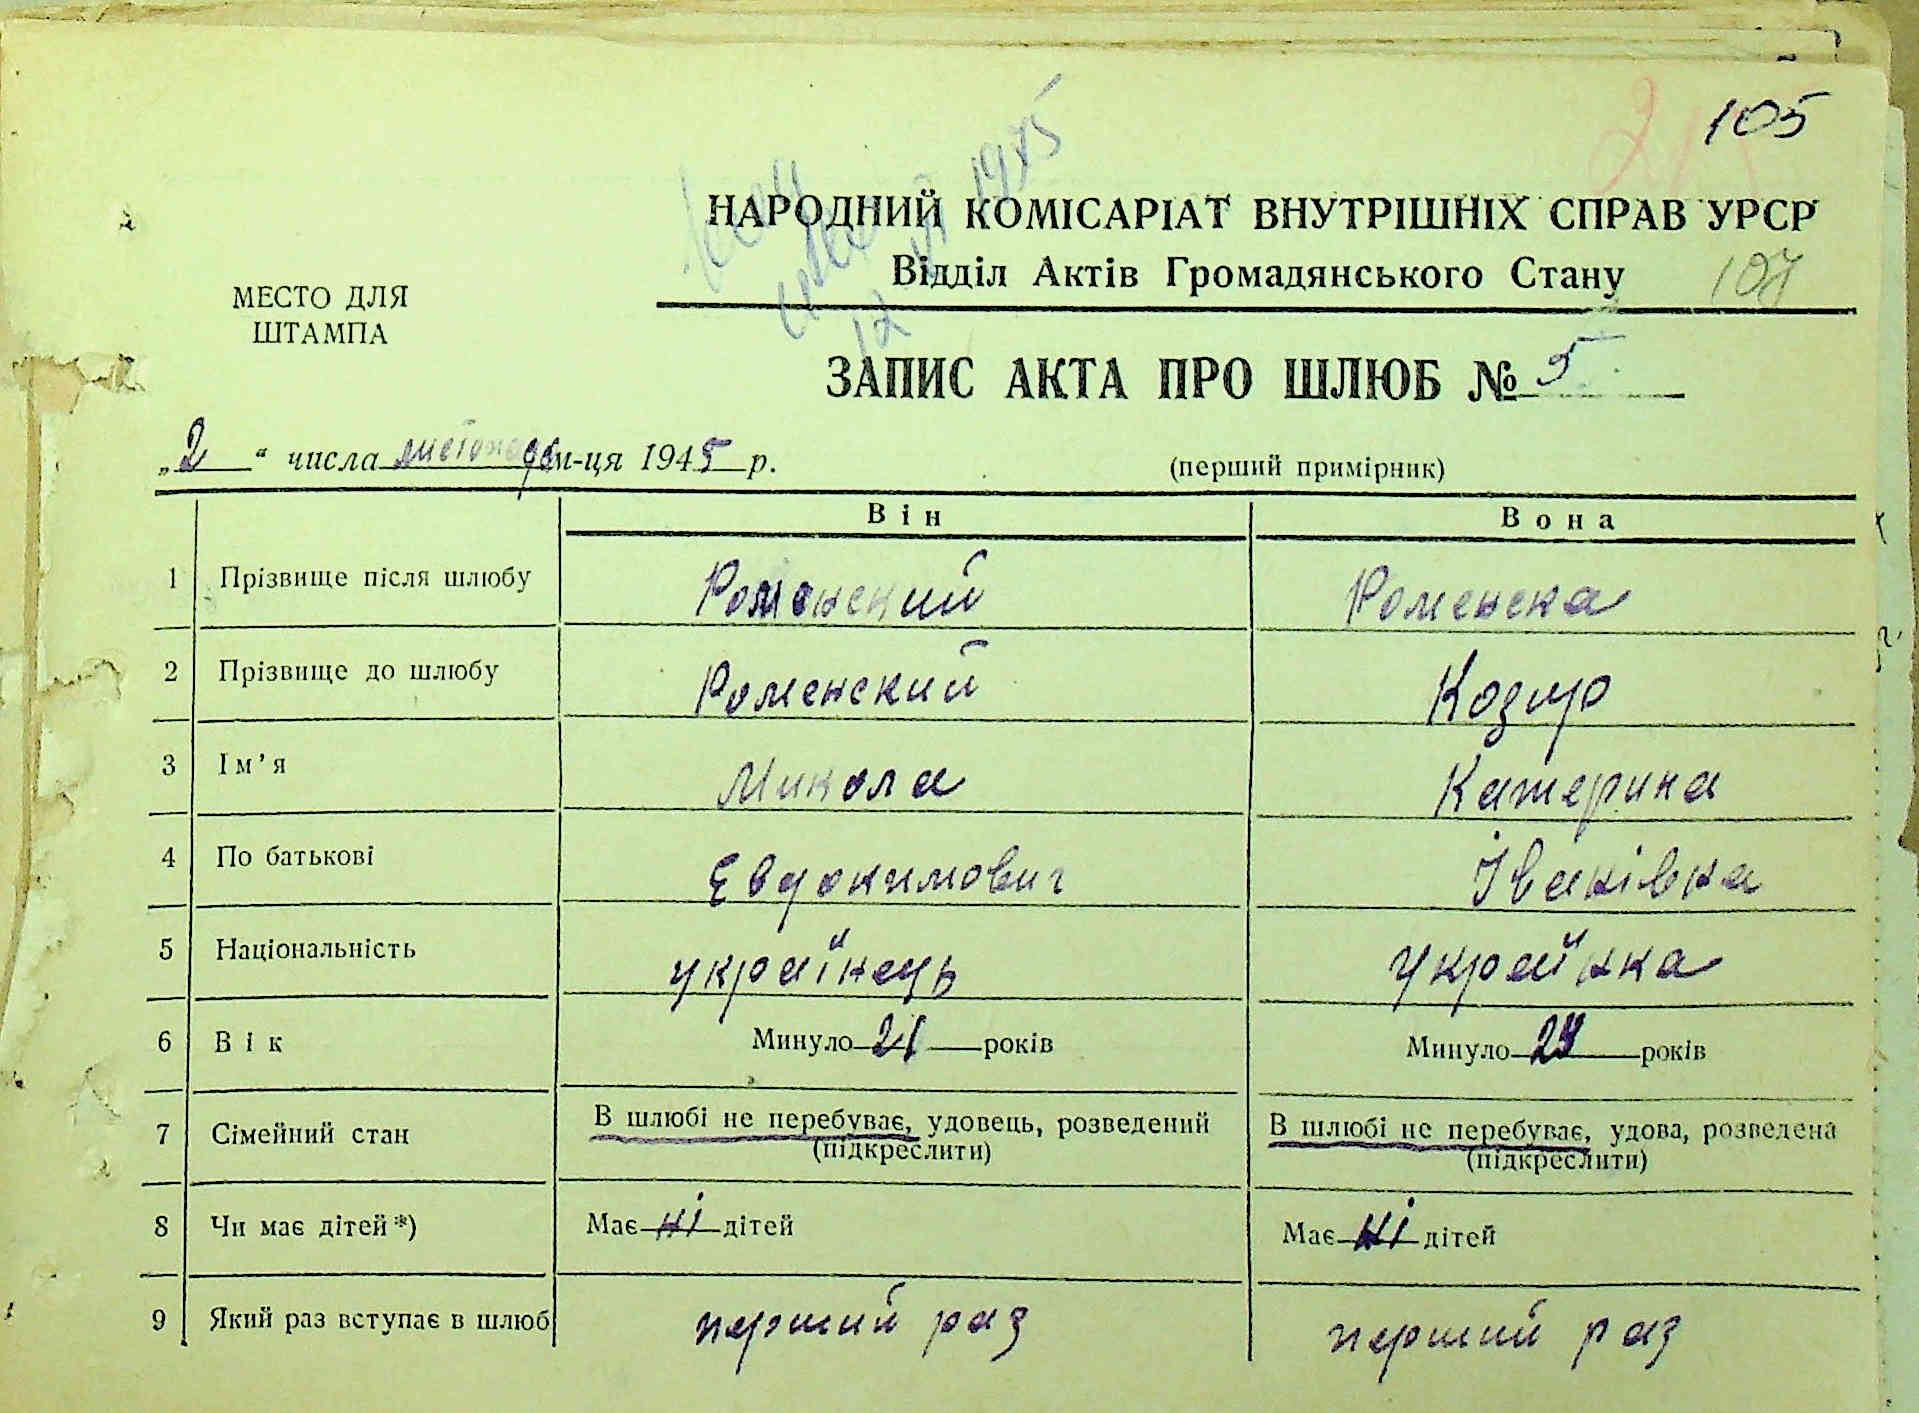 105
НАРОДНИЙ КОМІСАРІАТ ВНУТРІШНІХ СПРАВ УРСР
Відділ Актів Громадянського Стану 107
МЕСТО ДЛЯ
ШТАМПА
1945
12
ЗАПИС АКТА ПРО ШЛЮБ № 5
„2“ числа листопада м-ця 1945 р. (перший примірник)
Він Вона
1 Прізвище після шлюбу Роменский Роменска
2 Прізвище до шлюбу Роменский Козир
3 Ім'я Микола Катерина
4 По батькові Евдокимович Іванівна
5 Національність українець українка
6 Вік Минуло 21 років Минуло 24 років
7 Сімейний стан В шлюбі не перебуває, удовець, розведений (підкреслити) В шлюбі не перебуває, удова, розведена (підкреслити)
8 Чи має дітей*) Має ні дітей Має ні дітей
9 Який раз вступає в шлюб перший раз перший раз